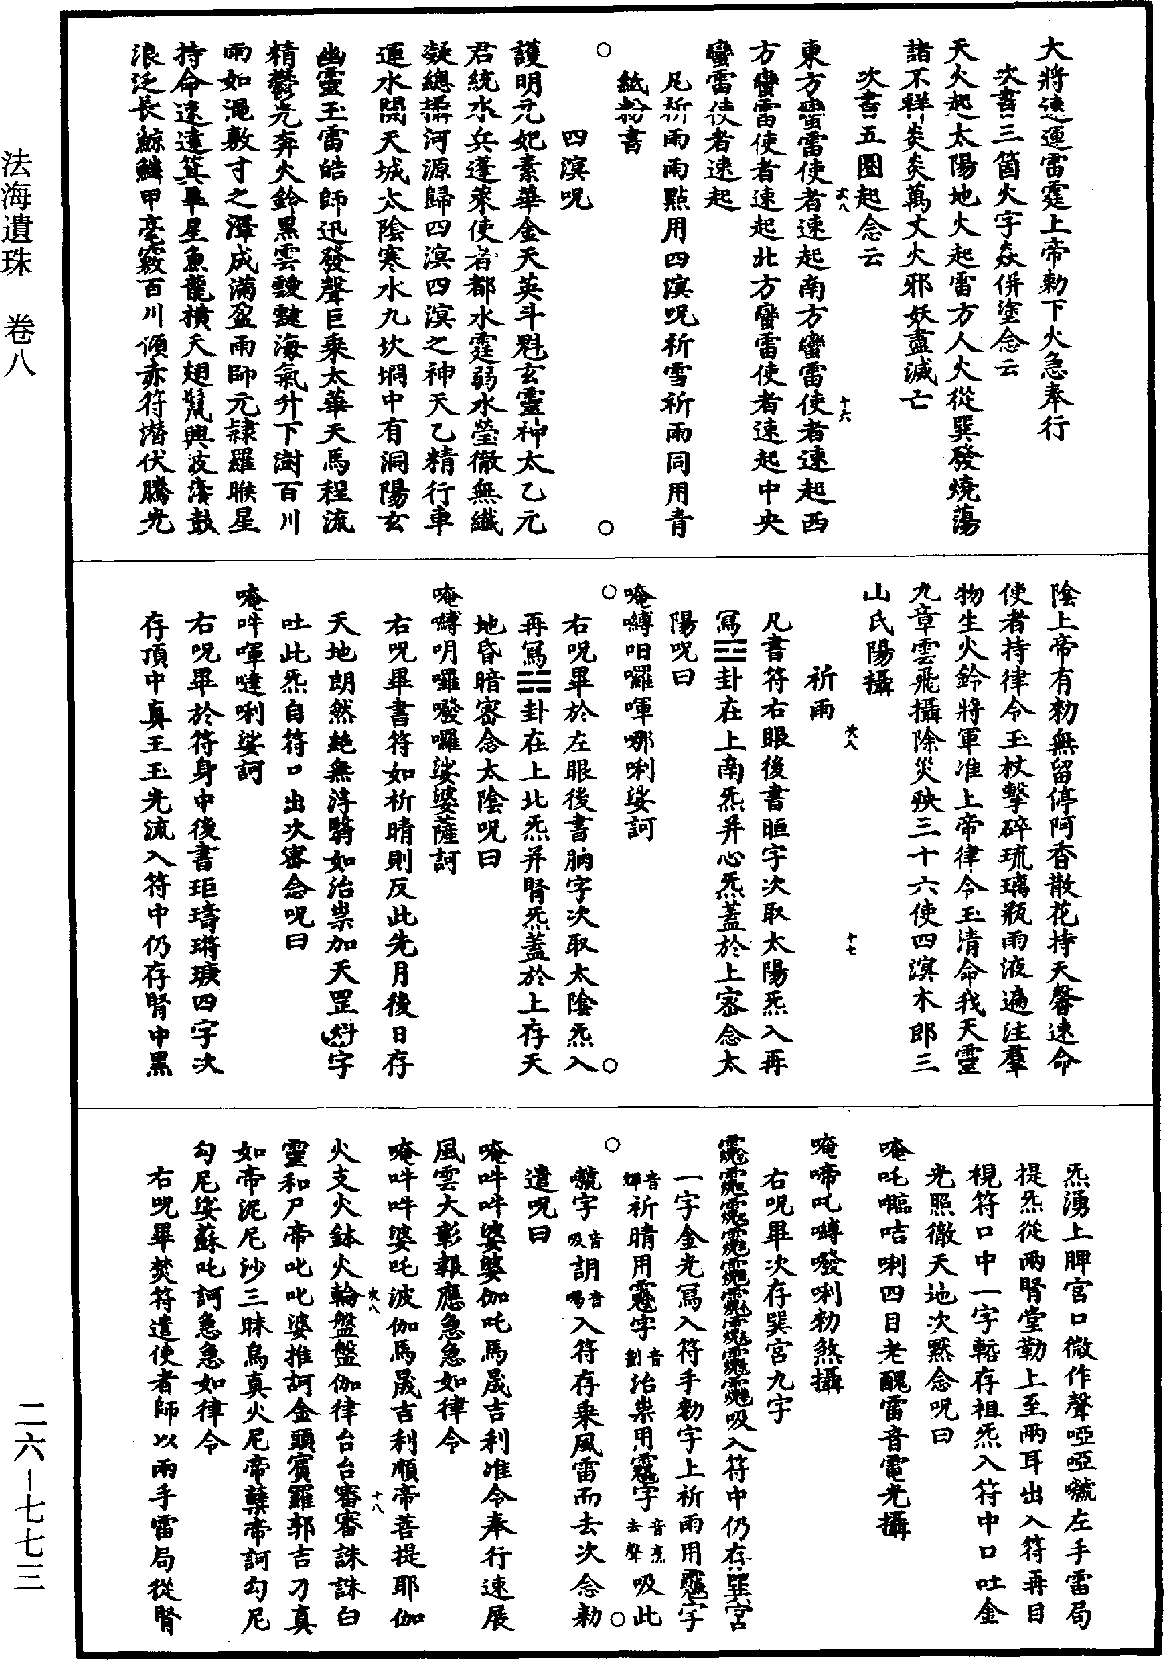 大將速運雷霆上帝勑下火急奉行
次書三箇火字焱併塗念云
天火起太陽地火起雷方人火從巽發燒蕩
諸不祥炎炎萬丈火邪妖盡滅亡
次書五圈起念云
東方蠻雷使者速起南方蠻雷使者速起西
方蠻雷使者速起北方蠻雷使者速起中央
蠻雷使者速起
凡祈雨雨點用四溟呪祈雪祈雨同用青
紙粉書
四溟呪
護明元妃素華金天英斗魁玄靈神太乙元
君統水兵蓬萊使者都水霆弱水瑩徹無纖
凝總攝河源歸四溟四溟之神天乙精行車
運水開天城太陰寒水九坎坰中有洞陽玄
幽靈玉雷皓師迅發聲巨乘太華天馬程流
精鬱光奔火鈴黑雲靉靆海氣升下澍百川
雨如澠敷寸之澤成滿盈雨師元隸羅睺星
持命速遣箕畢星魚龍橫天翅鬣興波濤鼓
浪泛長鯨鱗甲毫竅百川傾赤符潛伏騰光
陰上帝有勑無留停阿香散花持天馨速命
使者持律令玉杖擊碎琉璃瓶雨液遍注羣
物生火鈴將軍准上帝律令玉清命我天靈
九章雲飛攝除災殃三十六使四溟木郎三
山氏陽攝
祈雨
凡書符右眼後書晅字次取太陽炁入再
寫☲卦在上南炁并心炁蓋於上密念太
陽呪曰
唵縛呾囉哻哪唎娑訶
右呪畢於左眼後書朒字次取太陰炁入
再寫☵卦在上北炁并腎炁蓋於上存天
地昏暗密念太陰呪曰
唵縛明囉㘑囉娑婆薩訶
右呪畢書符如祈晴則反此先月後日存
天地朗然絶無滓翳如治祟加天罡字
吐此炁自符口出次密念呪曰
唵吽哻噠唎娑訶
右呪畢於符身中後書四字次
存頂中真王玉光流入符中仍存腎中黑
炁湧上脾宮口微作聲啞啞左手雷局
提炁從兩腎堂勒上至兩耳出入符再目
視符口中一字輊存祖炁入符中口吐金
光照徹天地次黙念呪曰
唵吒嘔咭唎四目老醜雷音電光攝
唵啼吒囀㘑唎勑煞攝
右呪畢次存巽宮九字
吸入符中仍存巽宮
一字金光寫入符手勑字上祈雨用字
音輝祈晴用字音劃治祟用字音烹去聲吸此
字音吸詚音喝入符存乘風雷而去次念勑
遣呪曰
唵吽吽婆婆伽吒馬晟吉利准令奉行速展
風雲大彰報應急急如律令
唵吽吽婆吒波伽馬晟吉利順帝菩提耶伽
火支火鉢火輪盤盤伽律台台審審誅誅白
靈和尸帝叱叱婆推訶金頭賓羅郭吉刀真
如帝泥尼沙三昧烏真火尼帝藥帝訶勾尼
勾尼娑蘇吒訶急急如律令
右呪畢焚符遣使者師以兩手雷局從腎
法海遺珠　卷八
二六—七七三